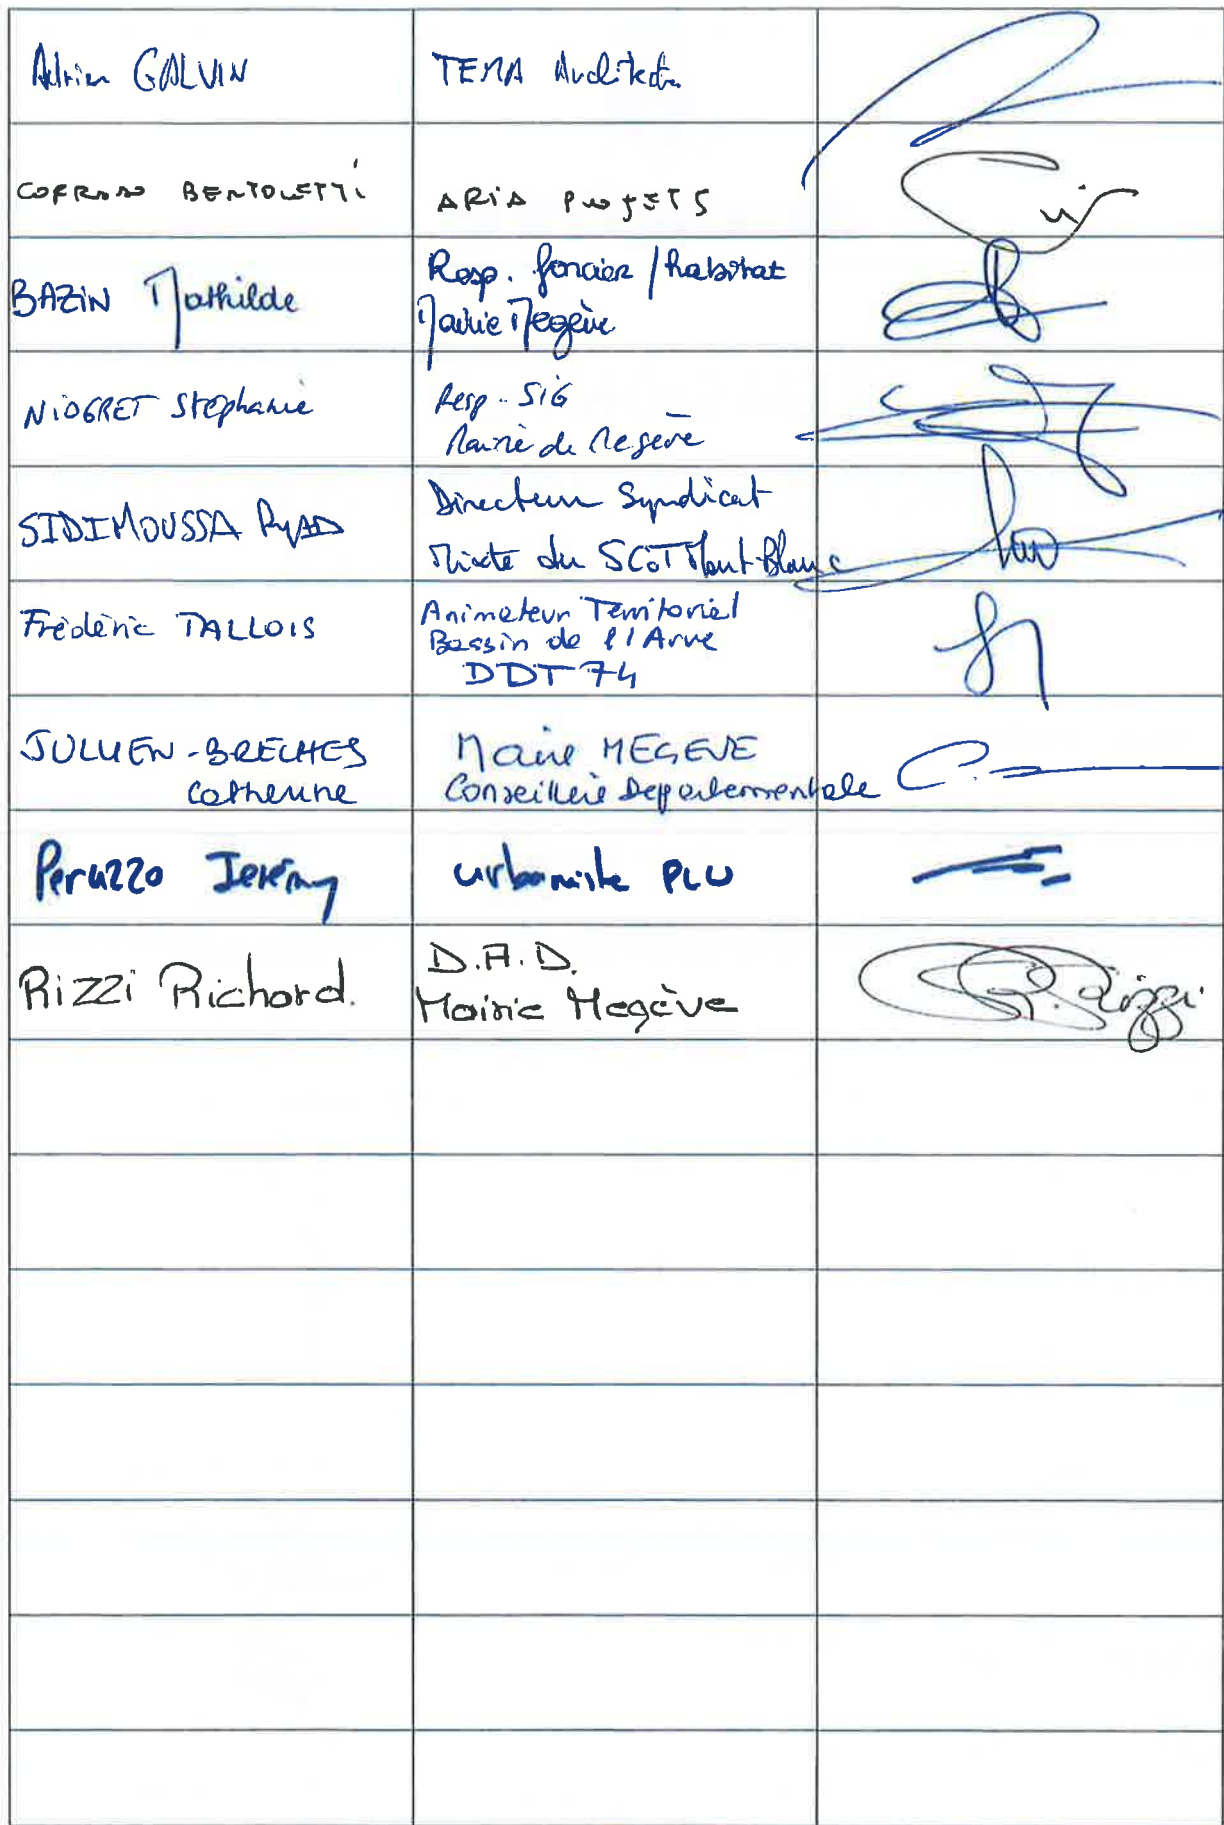 Adrien GALVIN
TEMA Architecte
BERTOLETTI
ARIA PROJETS
BAZIN Mathilde
Resp. foncier / habitat
Mairie Megève
NIOGRET Stéphanie
Resp. SIG
Mairie de Megève
SIDIMOUSSA RyAD
Directeur Syndicat
Mixte du SCOT Mont-Blanc
Frédéric TALLOIS
Animateur Territorial
Bassin de l'Arve
DDT 74
JULLIEN-BRECHES
Catherine
Maire MEGEVE
Conseillère Départementale
Peruzzo Jérémy
urbaniste PLU
Rizzi Richard.
D.A.D.
Mairie Megève
R. Rizzi